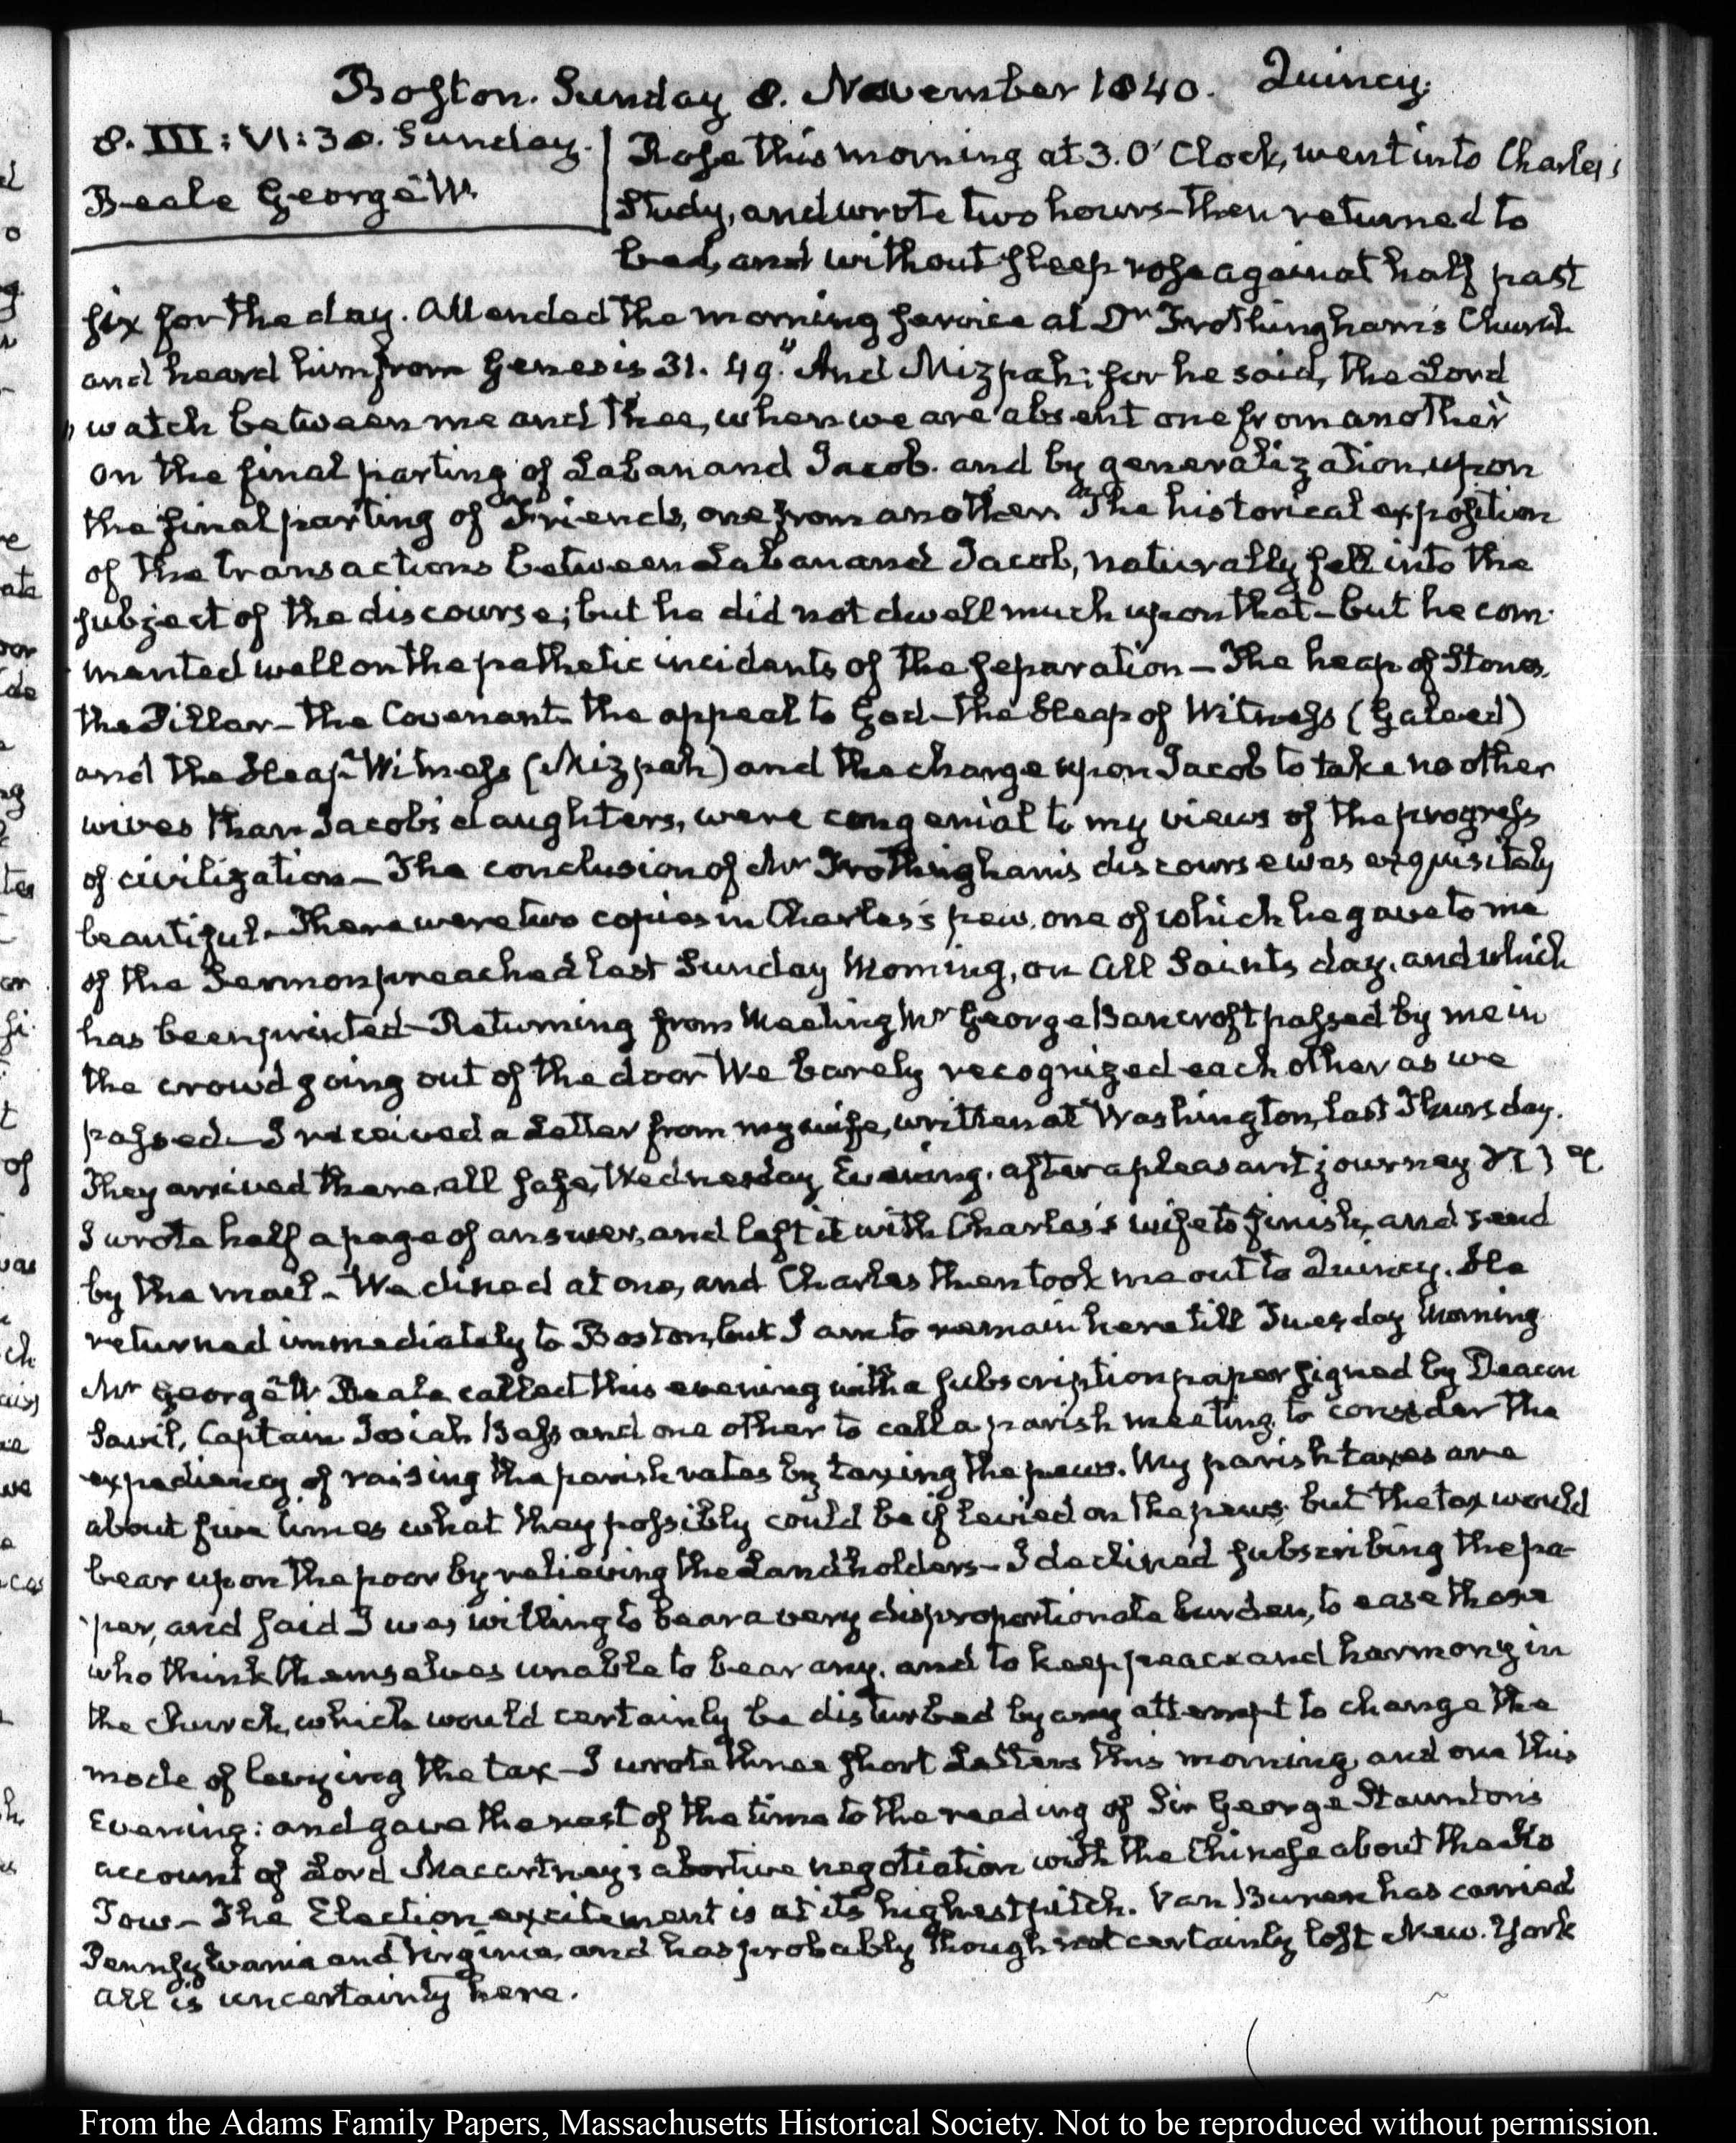 Boston. Sunday 8. November 1840. Quincy.
8. III: VI:30. Sunday.
Beale George W.
Rose this morning at 3. O'Clock, went into Charles's
Study, and wrote two hours - then returned to
bed, and without sleep rose again at half past
six for the day. Attended the morning service at Dr Frothingham's Church
and heard him from Genesis 31. 49. "And Mizpah; for he said, the Lord
" watch between me and thee, when we are absent one from another"
on the final parting of Laban and Jacob. and by generalization, upon
the final parting of Friends, one from another. The historical exposition
of the transactions between Laban and Jacob, naturally fell into the
subject of the discourse; but he did not dwell much upon that - but he com-
mented well on the pathetic incidents of the separation - The heap of Stones,
the Pillar - the Covenant - the appeal to God - the Heap of Witness (Galeed)
and the Heap-Witness (Mizpah) and the charge upon Jacob to take no other
wives than Jacob's daughters, were congenial to my views of the progress
of civilization - The conclusion of Mr Frothingham's discourse was exquisitely
beautiful - There were two copies in Charles's pew, one of which he gave to me
of the Sermon preached last Sunday Morning, on All Saints day, and which
has been printed - Returning from Meeting Mr George Bancroft passed by me in
the crowd going out of the door We barely recognized each other as we
passed - I received a Letter from my wife, written at Washington, last Thursday.
They arrived there, all safe, Wednesday Evening, after a pleasant journey
I wrote half a page of answer, and left it with Charles's wife to finish, and send
by the mail - We dined at one, and Charles then took me out to Quincy. He
returned immediately to Boston, but I am to remain here till Tuesday Morning
Mr George W. Beale called this evening with a subscription paper signed by Deacon
Savil, Captain Josiah Bass and one other to call a parish meeting, to consider the
expediency of raising the parish rates by taxing the pews. My parish taxes are
about five times what they possibly could be if levied on the pews, but the tax would
bear upon the poor by relieving the Landholders - I declined subscribing the pa-
per, and said I was willing to bear a very disproportionate burden, to ease those
who think themselves unable to bear any, and to keep peace and harmony in
the Church, which would certainly be disturbed by any attempt to change the
mode of levying the tax - I wrote three short Letters this morning, and one this
Evening: and gave the rest of the time to the reading of Sir George Staunton's
account of Lord Macartney's abortive negotiation with the Chinese about the Ko
Tow - The Election excitement is at its highest pitch. Van Buren has carried
Pennsylvania and Virginia, and has probably though not certainly lost New-York
All is uncertainty here.
From the Adams Family Papers, Massachusetts Historical Society. Not to be reproduced without permission.